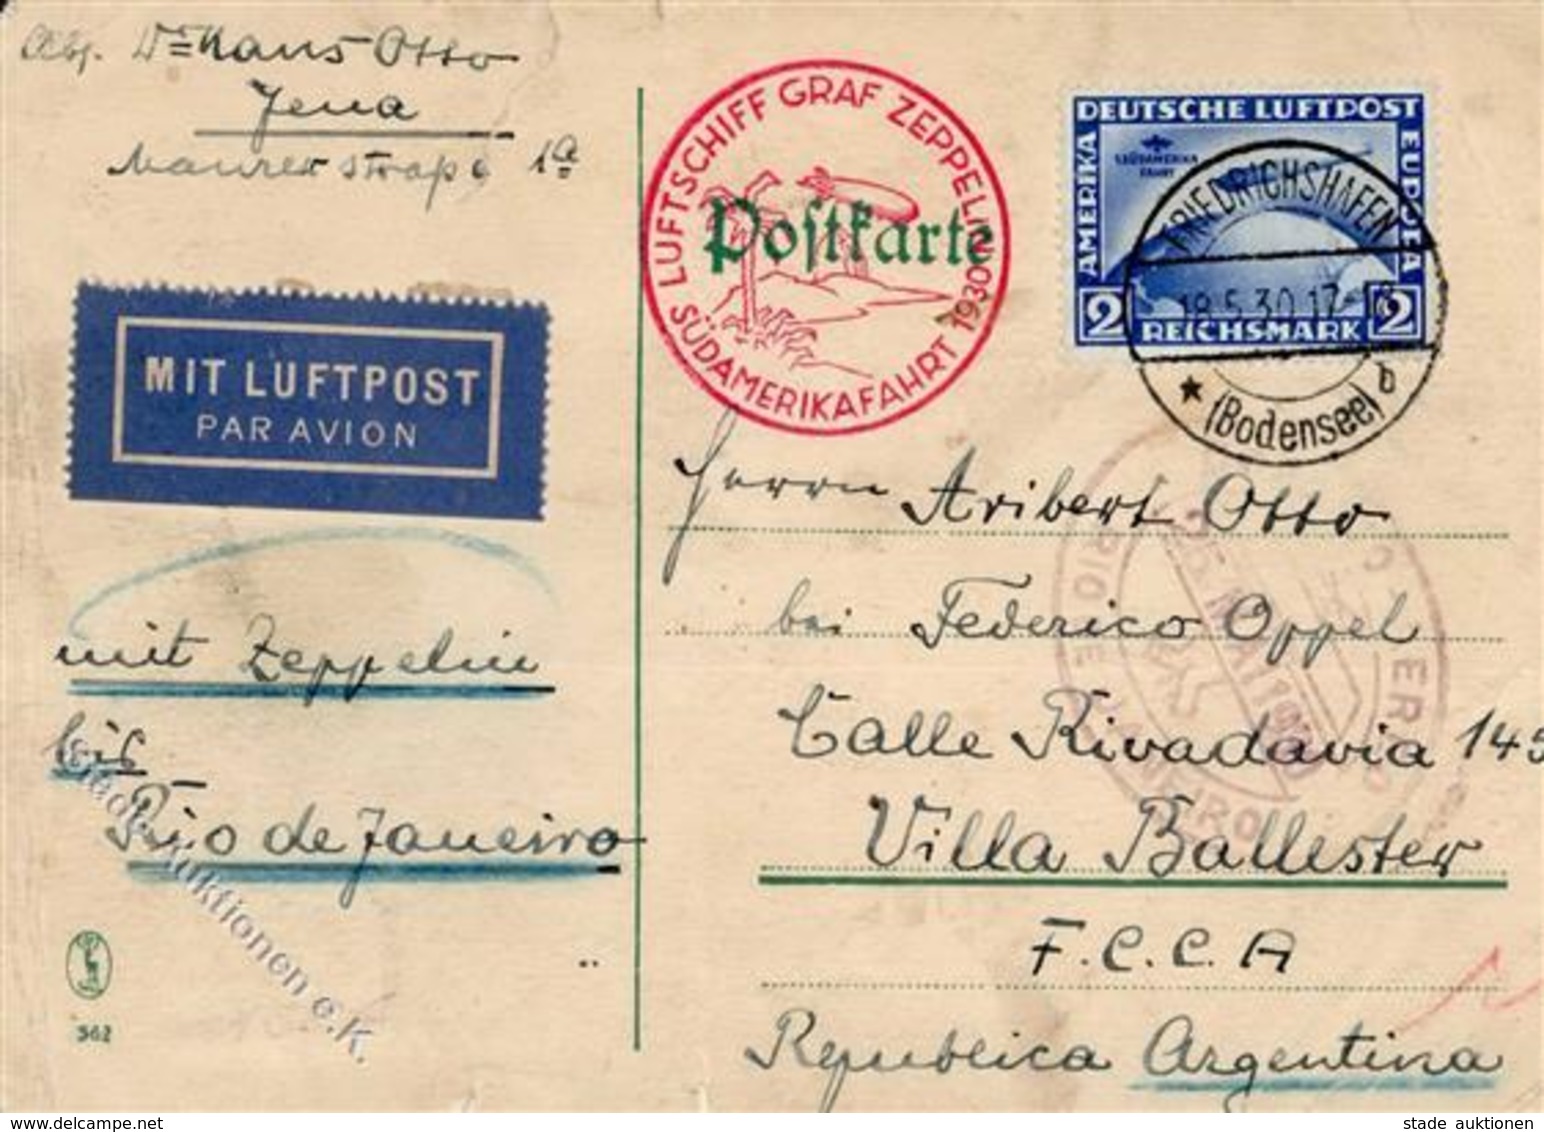 Abs. Dr Hans Otto
Jena
Maurerstraße 1a
LUFTSCHIFF GRAF ZEPPELIN
SÜDAMERIKAFAHRT 1930
Postkarte
DEUTSCHE LUFTPOST
AMERIKA
EUROPA
SÜDAMERIKA
FAHRT
2 REICHSMARK 2
FRIEDRICHSHAFEN
18.5.30.17-18
(Bodensee) b
MIT LUFTPOST
PAR AVION
mit Zeppelin
bis
Rio de Janeiro
Herrn Aribert Otto
bei Federico Oppel
Calle Rivadavia 145
Villa Ballester
F.C.C.A
Republica Argentina
RIO DE JANEIRO
25 MAI 1930
562
auktionen e.K.
stade auktionen